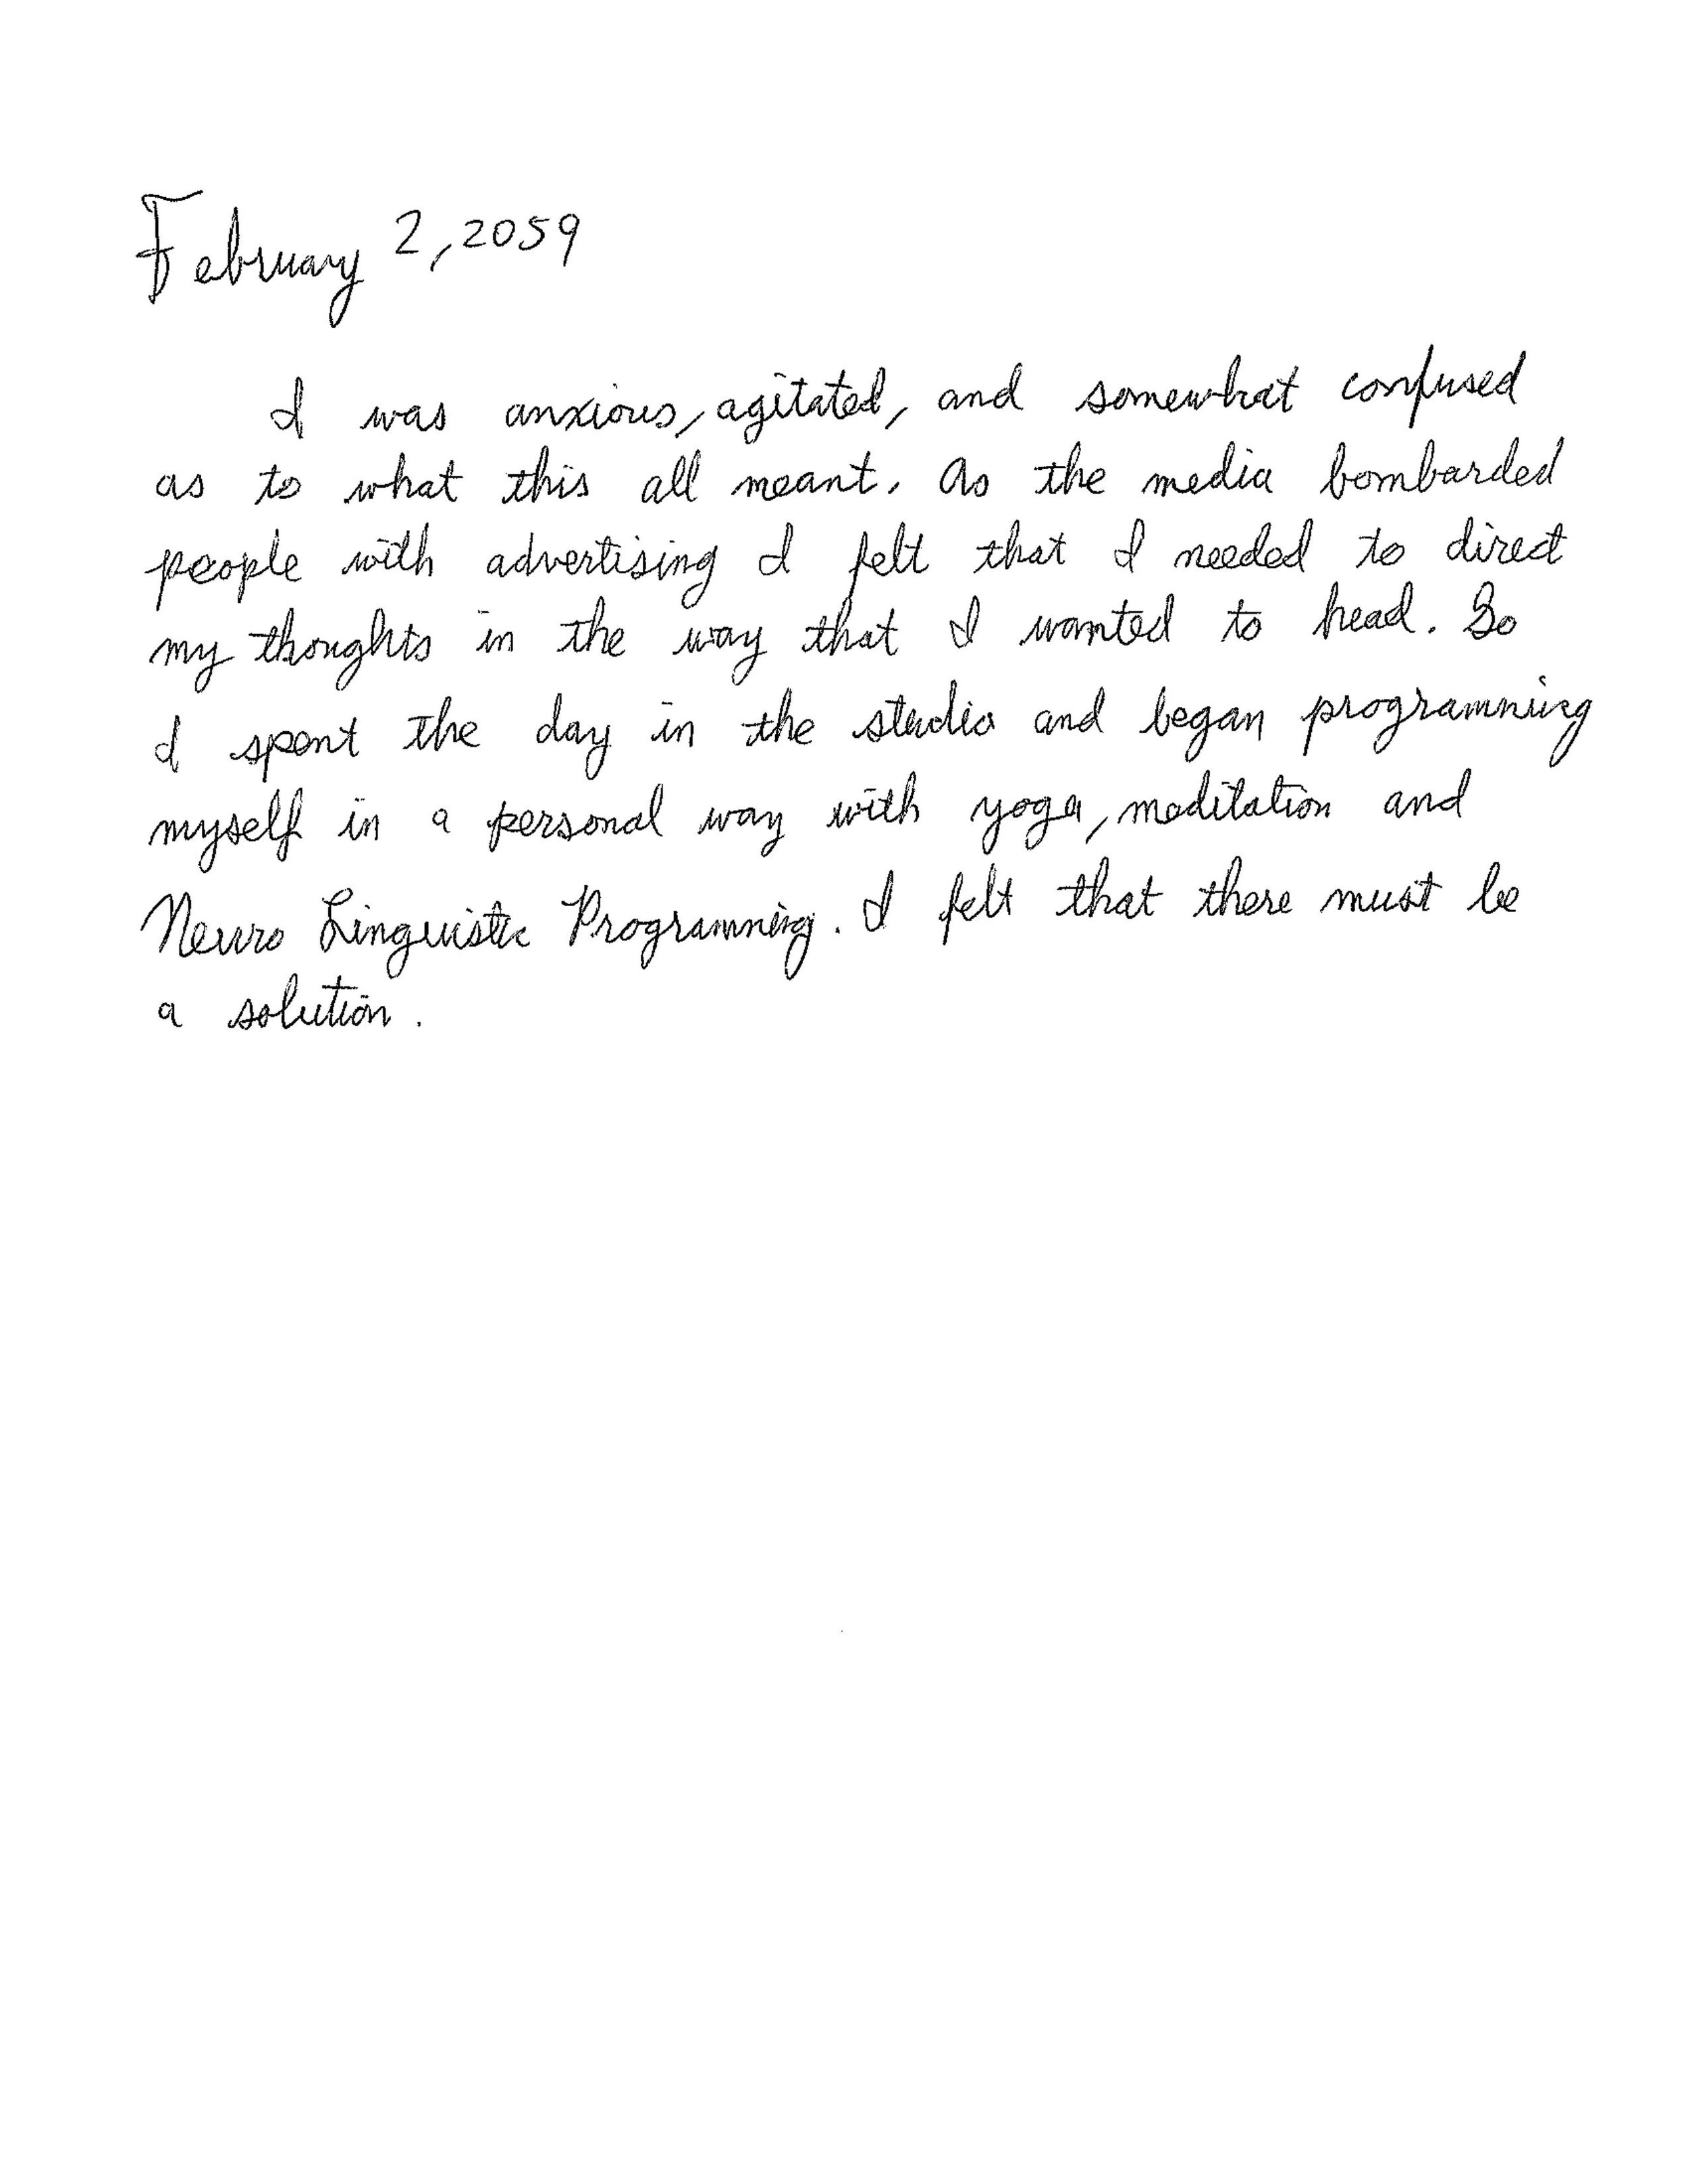 February 2, 2059
I was anxious, agitated, and somewhat confused
as to what this all meant. As the media bombarded
people with advertising I felt that I needed to direct
my thoughts in the way that I wanted to head. So
I spent the day in the studio and began programming
myself in a personal way with yoga, meditation and
Neuro Linguistic Programming. I felt that there must be
a solution.